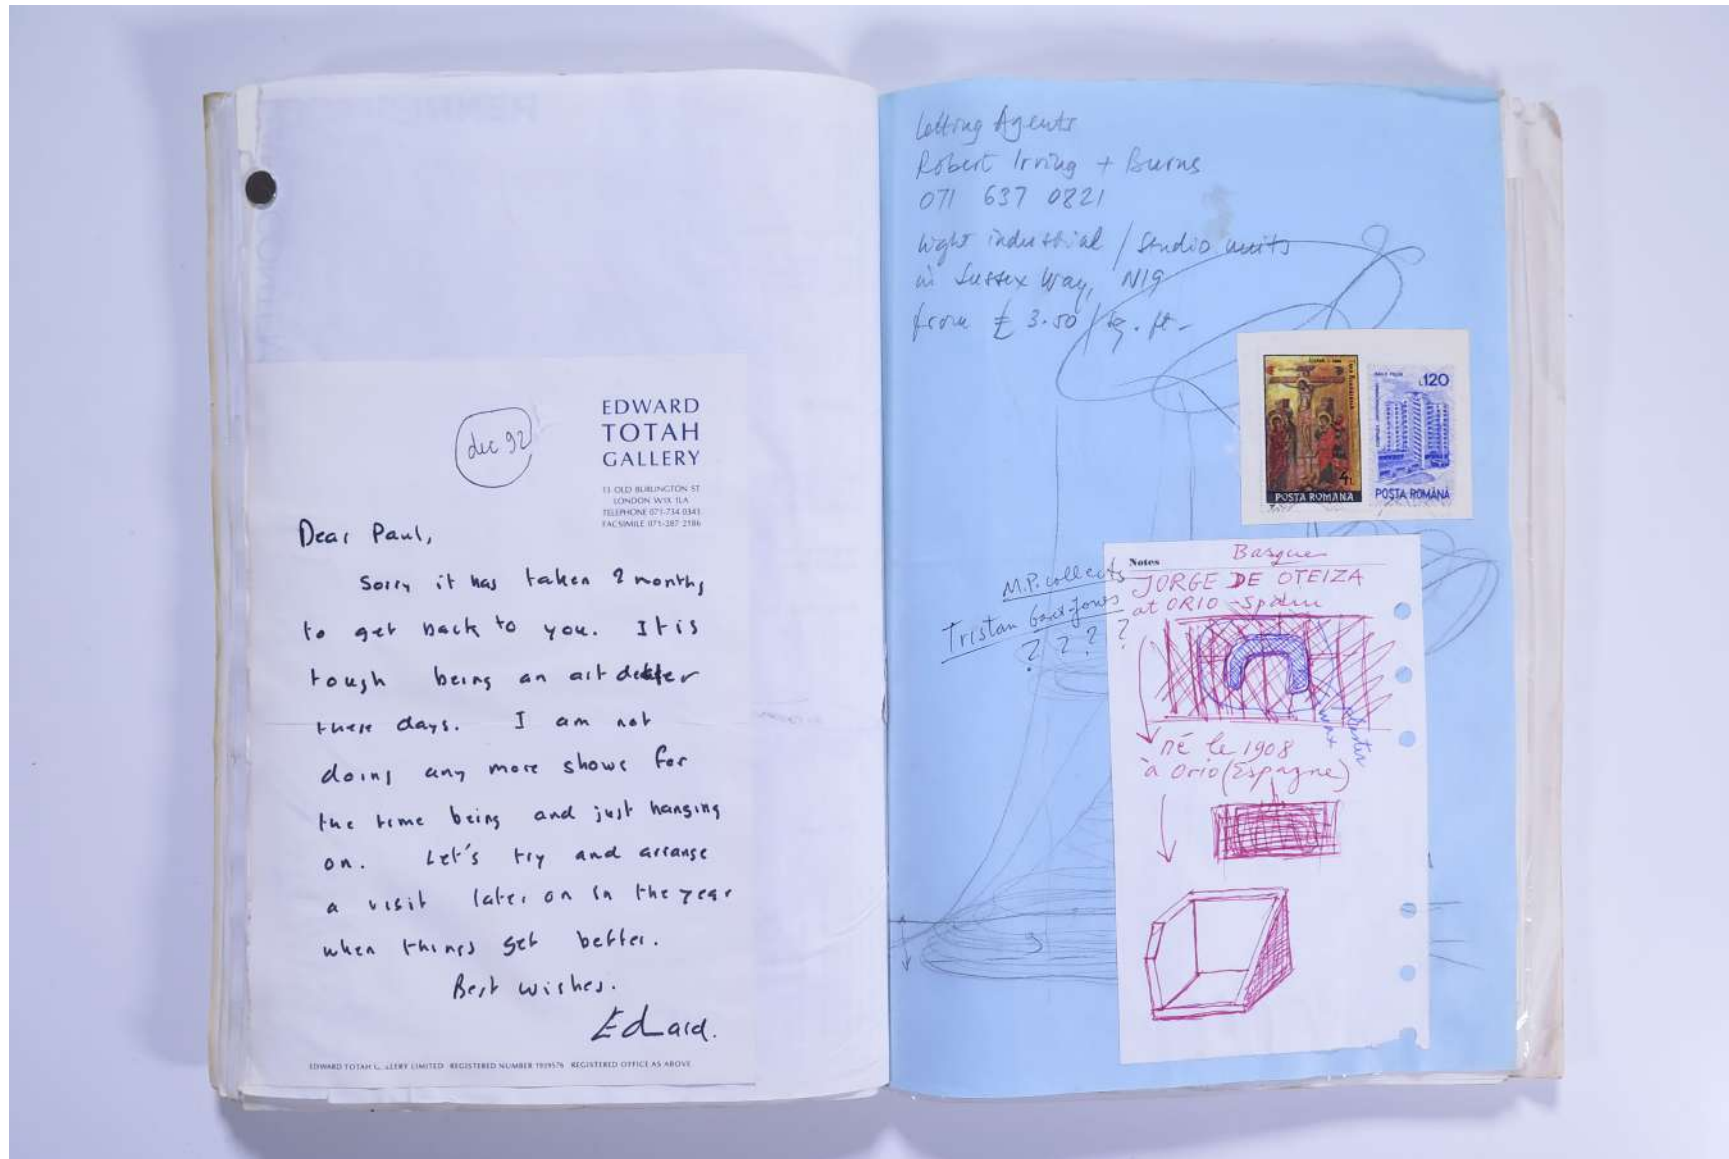 dec 92
EDWARD
TOTAH
GALLERY
13 OLD BURLINGTON ST
LONDON W1X 1LA
TELEPHONE 071-734 0343
FACSIMILE 071-287 2186
Dear Paul,
Sorry it has taken 2 months
to get back to you. It is
tough being an art dealer
these days. I am not
doing any more shows for
the time being and just hanging
on. Let's try and arrange
a visit later on in the year
when things get better.
Best wishes.
Edward.
EDWARD TOTAH GALLERY LIMITED REGISTERED NUMBER 1939576 REGISTERED OFFICE AS ABOVE
Letting Agents
Robert Irving + Burns
071 637 0821
light industrial / Studio units
in Sussex Way, N19
from £ 3.50 / sq. ft.
4L
POSTA ROMANA
L120
POȘTA ROMÂNĂ
M.P. collects
Tristan Garel-Jones
? ? ? ?
Notes
Basque
JORGE DE OTEIZA
at ORIO - Spain
né le 1908
à Orio (Espagne)